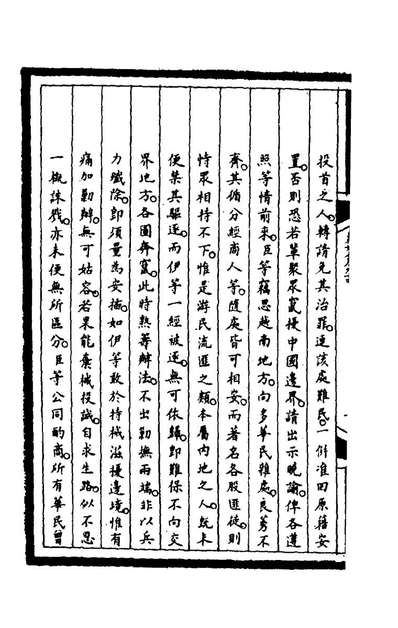 投首之人轉請免其治罪連該處難民一併准回原籍安
置否則恐若輩聚眾竄擾中國邊界請出示曉諭俾各遵
照等情前來臣等竊思越南地方向多華民雜處良莠不
齊其循分經商人等隨處皆可相安而著名各股匪徒則
恃眾相持不下惟是游民流匪之類本屬內地之人既未
便禁其驅逐而伊等一經被逐無可依歸即難保不向交
界地方各圖奔竄此時熟籌辦法不出勦撫兩端非以兵
力殲除即須量為安插如伊等敢於持械滋擾邊境惟有
痛加勦辦無可姑容若果能棄械投誠自求生路似不忍
一概誅戮亦未便無所區分臣等公同酌商所有華民曾